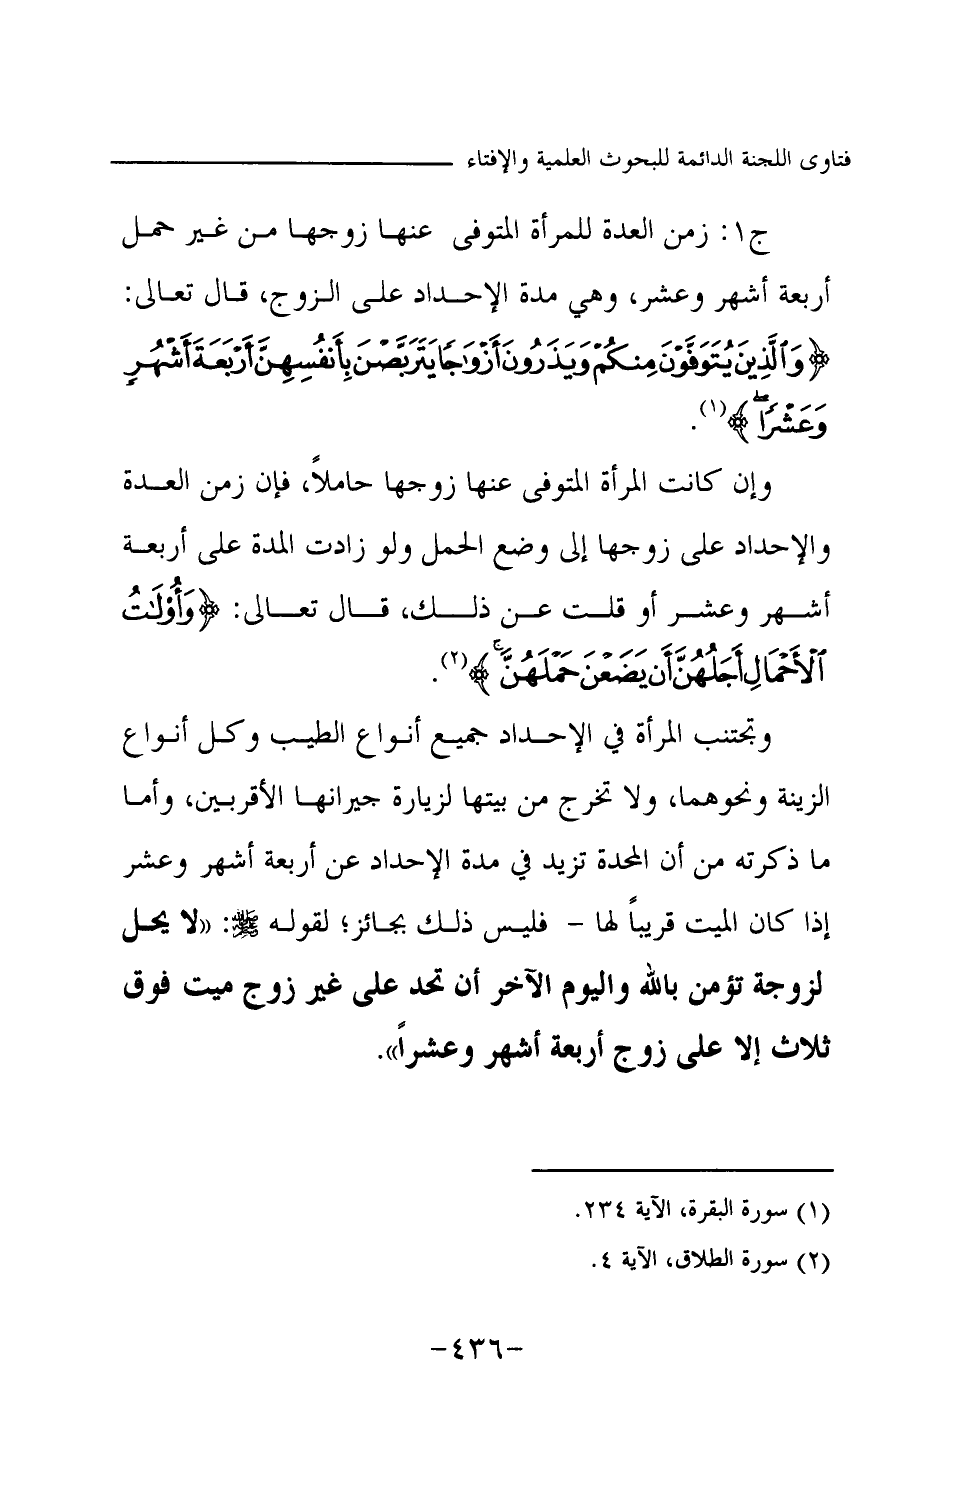 فتاوى اللجنة الدائمة للبحوث العلمية والإفتاء
ج١: زمن العدة للمرأة المتوفى عنها زوجها من غير حمل
أربعة أشهر وعشر، وهي مدة الإحداد على الزوج، قال تعالى:
﴿وَٱلَّذِينَ يُتَوَفَّوْنَ مِنكُمْ وَيَذَرُونَ أَزْوَٰجًا يَتَرَبَّصْنَ بِأَنفُسِهِنَّ أَرْبَعَةَ أَشْهُرٍ
وَعَشْرًا ۖ﴾(١).
وإن كانت المرأة المتوفى عنها زوجها حاملاً، فإن زمن العدة
والإحداد على زوجها إلى وضع الحمل ولو زادت المدة على أربعة
أشهر وعشر أو قلت عن ذلك، قال تعالى: ﴿وَأُوْلَٰتُ
ٱلْأَحْمَالِ أَجَلُهُنَّ أَن يَضَعْنَ حَمْلَهُنَّ ۚ﴾(٢).
وتجتنب المرأة في الإحداد جميع أنواع الطيب وكل أنواع
الزينة ونحوهما، ولا تخرج من بيتها لزيارة جيرانها الأقربين، وأما
ما ذكرته من أن المحدة تزيد في مدة الإحداد عن أربعة أشهر وعشر
إذا كان الميت قريباً لها - فليس ذلك بجائز؛ لقوله ﷺ: «لا يحل
لزوجة تؤمن بالله واليوم الآخر أن تحد على غير زوج ميت فوق
ثلاث إلا على زوج أربعة أشهر وعشراً».
(١) سورة البقرة، الآية ٢٣٤.
(٢) سورة الطلاق، الآية ٤.
-٤٣٦-